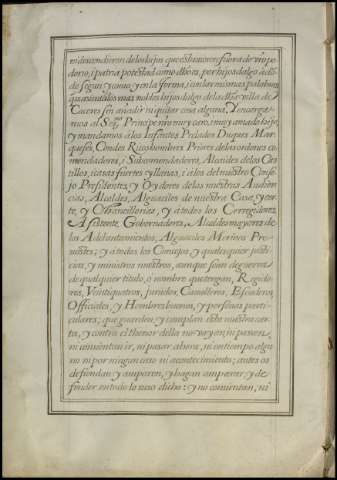 ni desconoceren de los hijos que estuvieren fuera de su po-
derio, i patria potestad como dho es, por hijosdalgo a uso
de segun y como y en la forma, i con las mismas palabras
que avindalos mas nobles hijos dalgo de la dha villa de
Caceres sin añadir ni quitar cosa alguna, Y encarga-
mos al Sermo Principe nro muy caro, i muy amado hijo,
y mandamos a los Infantes Prelados Duques Mar-
queses, Condes Ricoshombres Priores de las ordenes co-
mendadores, i Subcomendadores, Alcaides de los Cas-
tillos, i casas fuertes y llanas, i a los del nuestro Conse-
jo Presidentes, y Oydores de las nuestras Audien-
cias, Alcaldes, Alguaciles de nuestra Casa, y Cor-
te, y Chancillerias, y a todos los Corregidores,
Asistente, Governadores, Alcaldes mayores de
los Adelantamientos, Alguaciles Merinos Pre-
vostes; y a todos los Concejos, y qualesquier justi-
cias, y ministros nuestros, aunque sean de guerra
de qualquier titulo, o nombre que tengan, Regido-
res, Veintiquatros, jurados, Cavalleros, Escuderos
Officiales, y Hombres buenos, y personas parti-
culares; que guarden, y cumplan esta nuestra car-
ta, y contra el thenor della no vayan, ni passen,
ni consientan ir, ni pasar ahora, ni en tiempo algu-
no ni por ningun caso ni acontecimiento; antes os
defiendan, y amparen, y hagan amparar, y de-
fender en todo lo suso dicho: y no consientan, ni